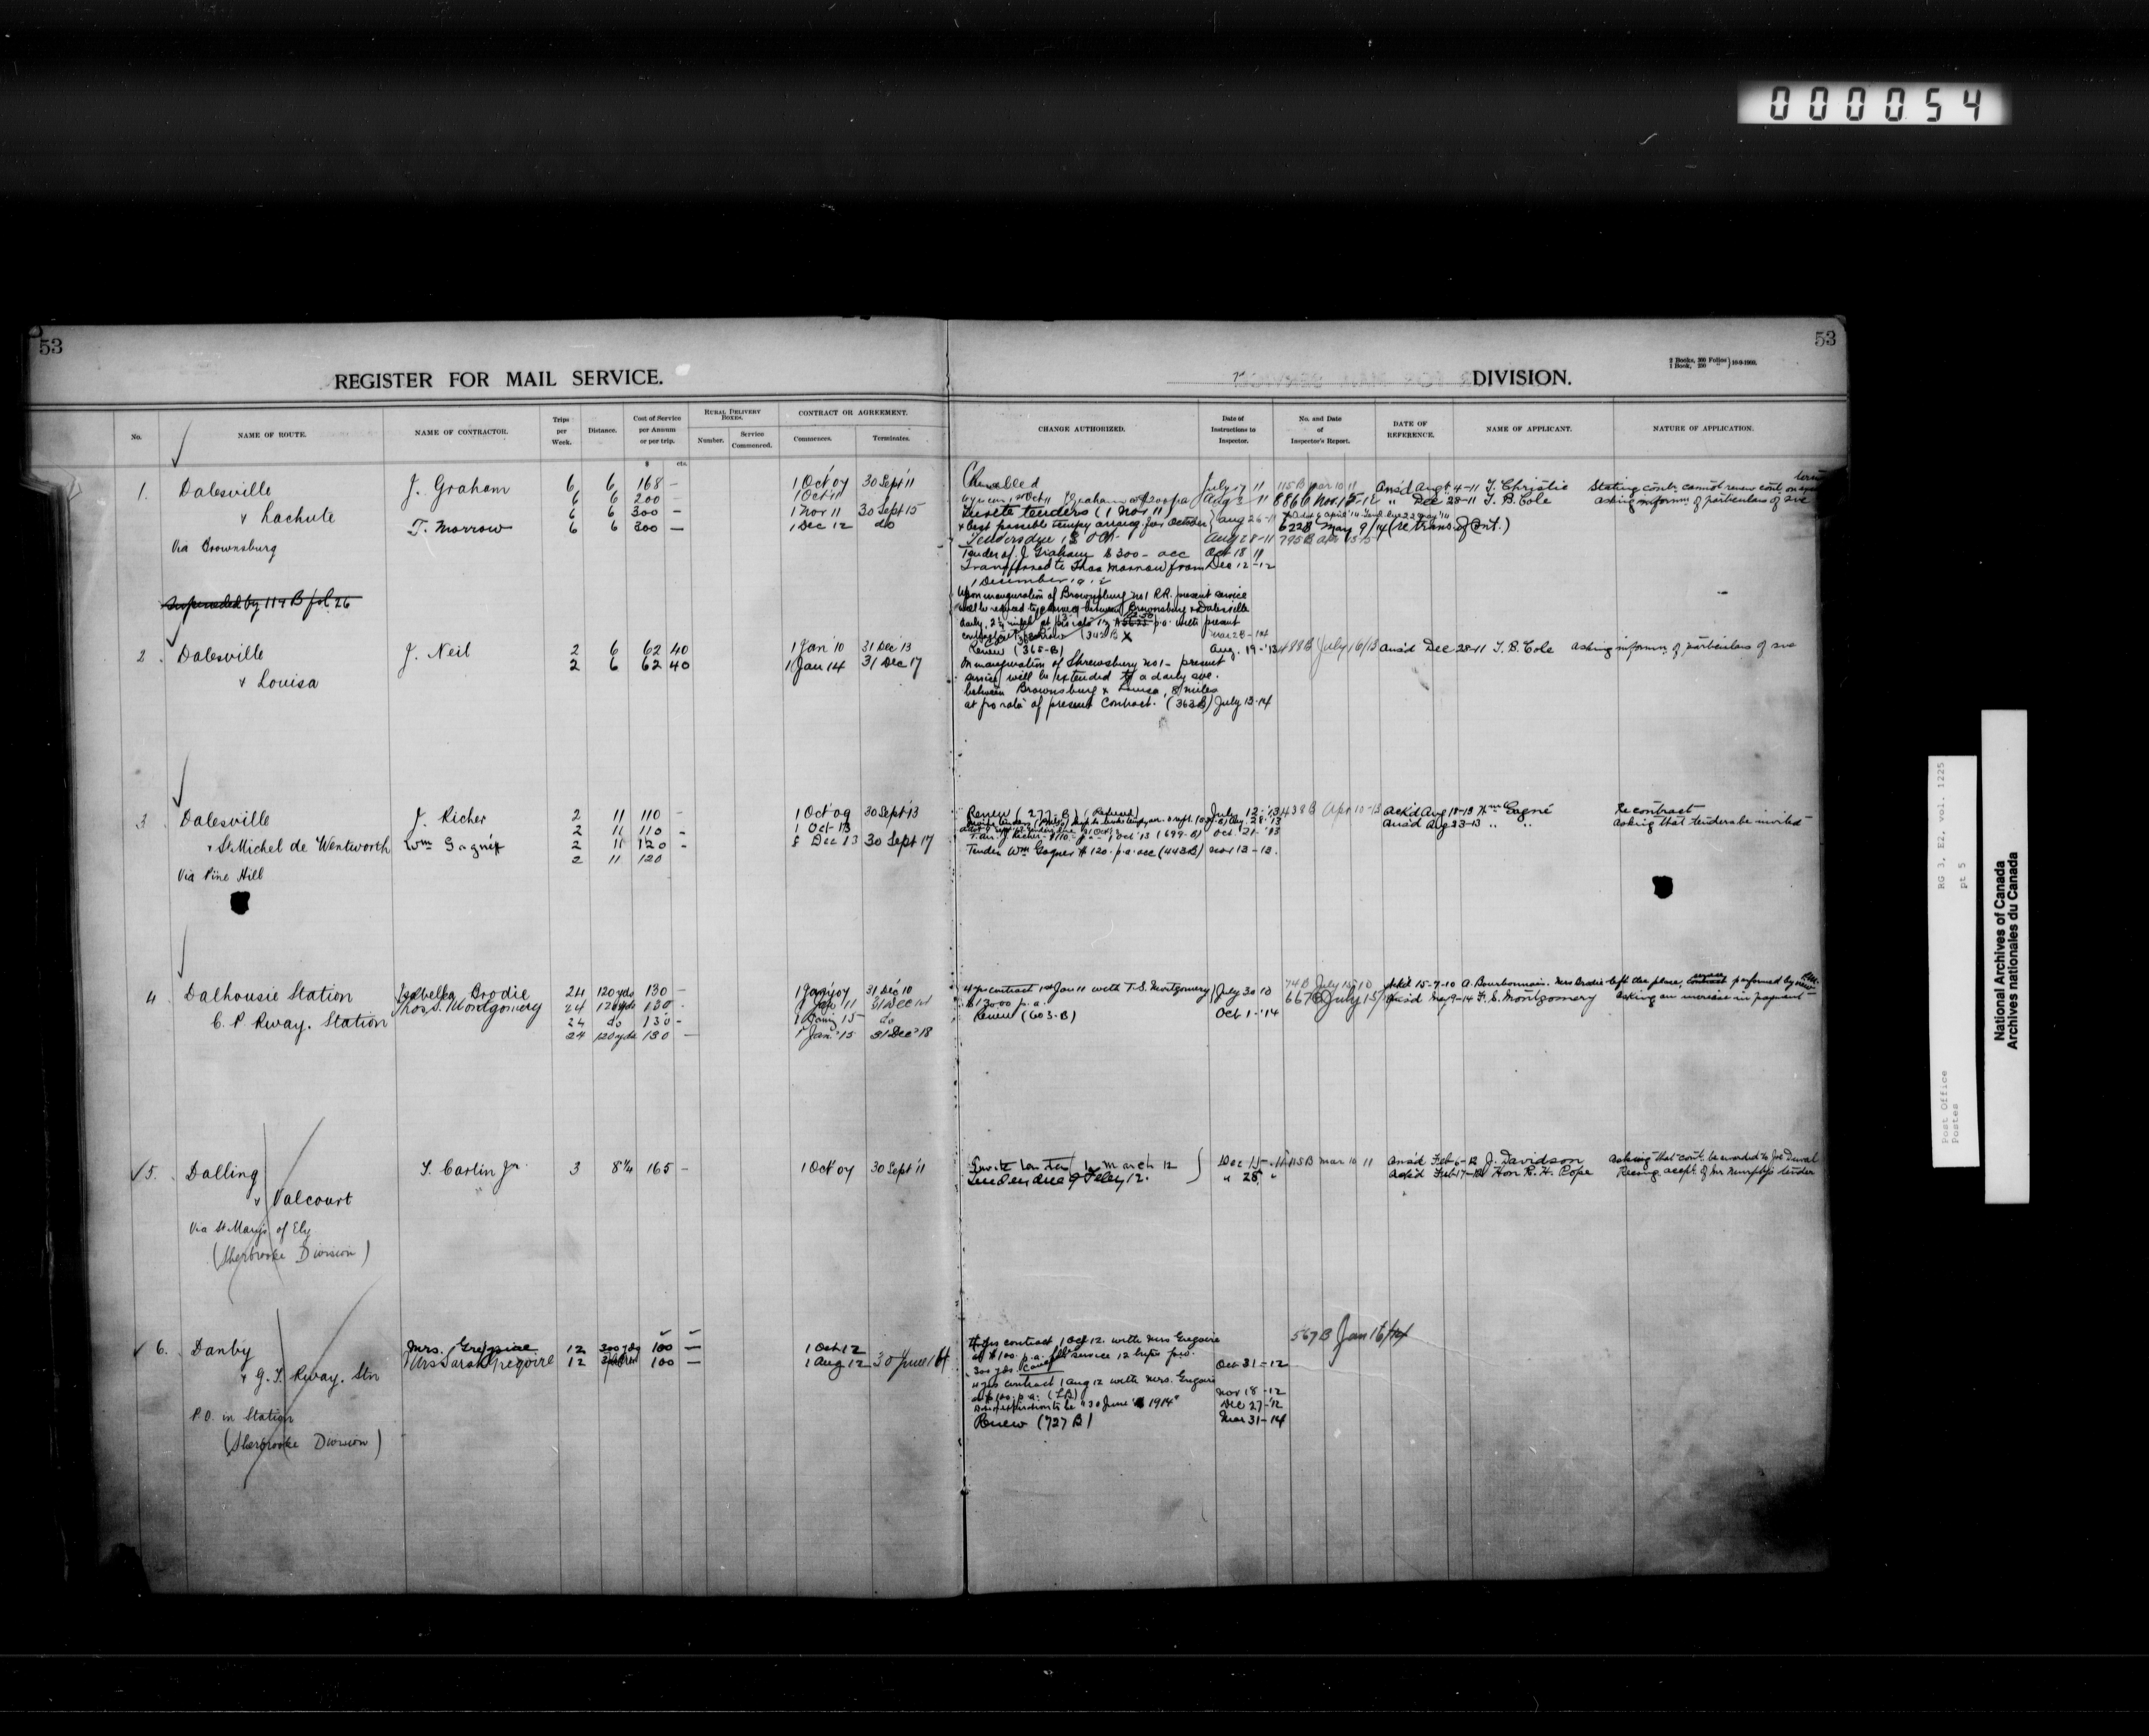 000054
53
REGISTER FOR MAIL SERVICE.
53
2 Books, 300 Folios
1 Book, 200
10-9-1909.
DIVISION.
No.
NAME OF ROUTE.
NAME OF CONTRACTOR.
Trips per Week.
Distance.
Cost of Service per Annum or per trip.
$ cts.
RURAL DELIVERY BOXES.
Number.
Service Commenced.
CONTRACT OR AGREEMENT.
Commences.
Terminates.
CHANGE AUTHORIZED.
Date of Instructions to Inspector.
No. and Date of Inspector's Report.
DATE OF REFERENCE.
NAME OF APPLICANT.
NATURE OF APPLICATION.
1. Dalesville
& Lachute
Via Brownsburg
Superseded by 114 B fol. 26
J. Graham 6 6 168 - 1 Oct '07 30 Sept '11
6 6 200 - 1 Oct '11
6 6 300 - 1 Nov 11 30 Sept 15
T. Morrow 6 6 300 - 1 Dec 12 do
Cancelled July 17 11 115 B Mar 10 11 Ans'd Aug 4-11 T. Christie Stating contr. cannot renew cont. on same terms
Aug 2 11 886 B Nov. 15-12 " Dec 28-11 T. B. Cole asking inform. of particulars of sve
Invite tenders (1 Nov 11
& best possible tempy arrang. for October Aug 26-11 622 B May 9/14 (re trans. of Cont.)
Tenders due 13 Oct. Aug 28-11 795 B Apr 15 15
Tender of J. Graham $300 - acc Oct 18 11
Transferred to Thos Morrow from Dec 12-12
1 December 1912
Upon inauguration of Brownsburg No 1 R.R. present service
will be reduced to service between Brownsburg & Dalesville
daily, 2¼ miles at pro rata present
Mar 28-14
2. Dalesville
& Louisa
J. Neil 2 6 62 40 1 Jan '10 31 Dec '13
2 6 62 40 1 Jan 14 31 Dec 17
Renew (365-B) Aug. 19-'13 488 B July 16/13 Ans'd Dec 28-11 T. B. Cole asking inform. of particulars of sve
On inauguration of Shrewsbury No 1 - present
service will be extended to a daily sve.
between Brownsburg & Louisa, 8 miles
at pro rata of present Contract. (363 B) July 13-14
3. Dalesville
& St Michel de Wentworth
Via Pine Hill
J. Richer 2 11 110 - 1 Oct '09 30 Sept '13
2 11 110 - 1 Oct 13
Wm Gagnier 2 11 120 - 1 Dec 13 30 Sept 17
2 11 120
Renew (277-B) (Refused) July 12-'13 438 B Apr 10-13 Ack'd Aug 18-13 Wm Gagné Re contract
Aug. 28-13 Ans'd Aug 23-13 " " asking that tenders be invited
T. arr. J. Richer - $110 - p.a. - 1 Oct '13 (699-B) Oct. 21-'13
Tender Wm Gagner $120. p.a. acc (443 B) Nov 13-13.
4. Dalhousie Station
C. P. Rway. Station
Isabella Brodie 24 120 yds 130 - 1 Jany 07 31 Dec 10
Thos. S. Montgomery 24 120 yds 130 - 1 Jan 11 31 Dec 14
24 do 130 - 1 Jany 15 do
24 120 yds 130 - 1 Jan. '15 31 Dec '18
4 yr contract 1st Jan 11 with T. S. Montgomery July 30 10 74 B July 15 10 Ack'd 15-7-10 A. Bourbonnais. Mrs Brodie left the place, contract performed by
$130.00 p.a. 667 B July 15/ Ans'd May 9-14 T. S. Montgomery asking an increase in payment
Renew (603-B) Oct 1-'14
5. Dalling
& Valcourt
Via St Mary's of Ely
(Sherbrooke Division)
T. Carlin Jr. 3 8¼ 165 - 1 Oct '07 30 Sept '11
Invite tender 1 March 12 Dec 15-11 115 B Mar 10 11 Ans'd Feb 6-12 J. Davidson asking that cont. be awarded to Joe Duval
Tenders due 9 Feby 12. " 28 " Ack'd Feb 17-12 Hon R. H. Pope Recmg. accpt. of Mr Murphy's tender
6. Danby
& G. T. Rway. Stn
P.O. in Station
(Sherbrooke Division)
Mrs. Gregoire 12 300 yds 100 - 1 Oct 12
Mrs Sarah Gregoire 12 100 - 1 Aug 12 30 June 14
4 yrs contract 1 Oct 12. with Mrs Gregoire 567 B Jan 16/14
at $100. p.a. for service 12 trips p.w.
300 yds. Cancelled Oct 31-12
4 yrs contract 1 Aug 12 with Mrs. Gregoire
at $100. p.a. Nov 18-12
Date of expiration to be "30 June 1914" Dec 27-'12
Renew (727 B) Mar 31-14
National Archives of Canada
Archives nationales du Canada
RG 3, E2, vol. 1225
pt 5
Post Office
Postes